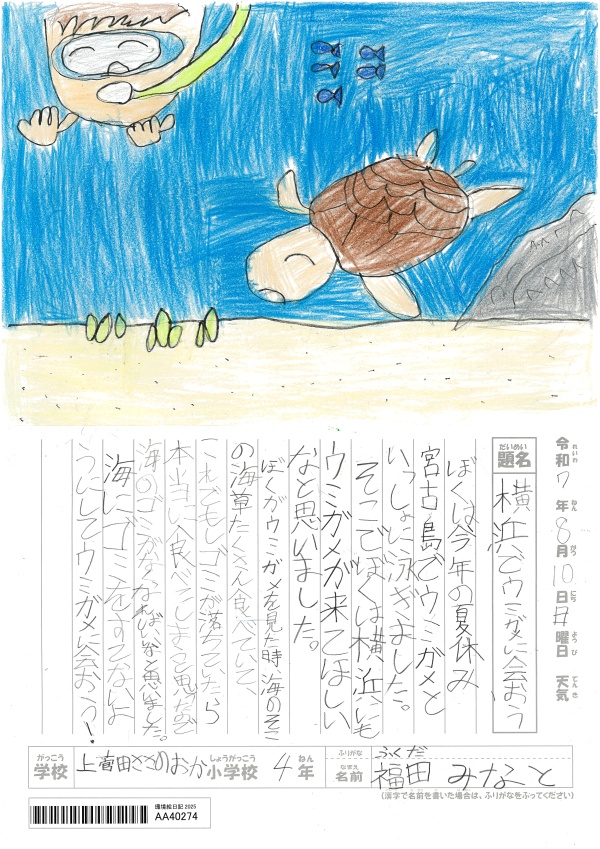 令和7年8月10日日曜日 天気
れいわ ねん がつ にち ようび てんき
だいめい
題名 横浜でウミガメに会おう
ぼくは今年の夏休み
宮古島でウミガメと
いっしょに泳ぎました。
そこでぼくは横浜にも
ウミガメが来てほしい
なと思いました。
ぼくがウミガメを見た時海のそこ
の海草たくさん食べていて、
これでもしゴミが落ちていたら
本当に食べてしまうと思たので
海のゴミがなくなればいいなと思いました。
海にゴミをすてないよ
うにしてウミガメに会おう!
がっこう しょうがっこう ねん ふりがな ふくだ
学校 上菅田ささのおか小学校 4年 なまえ 名前 福田 みなと
(漢字で名前を書いた場合は、ふりがなをふってください)
環境絵日記 2025
AA40274